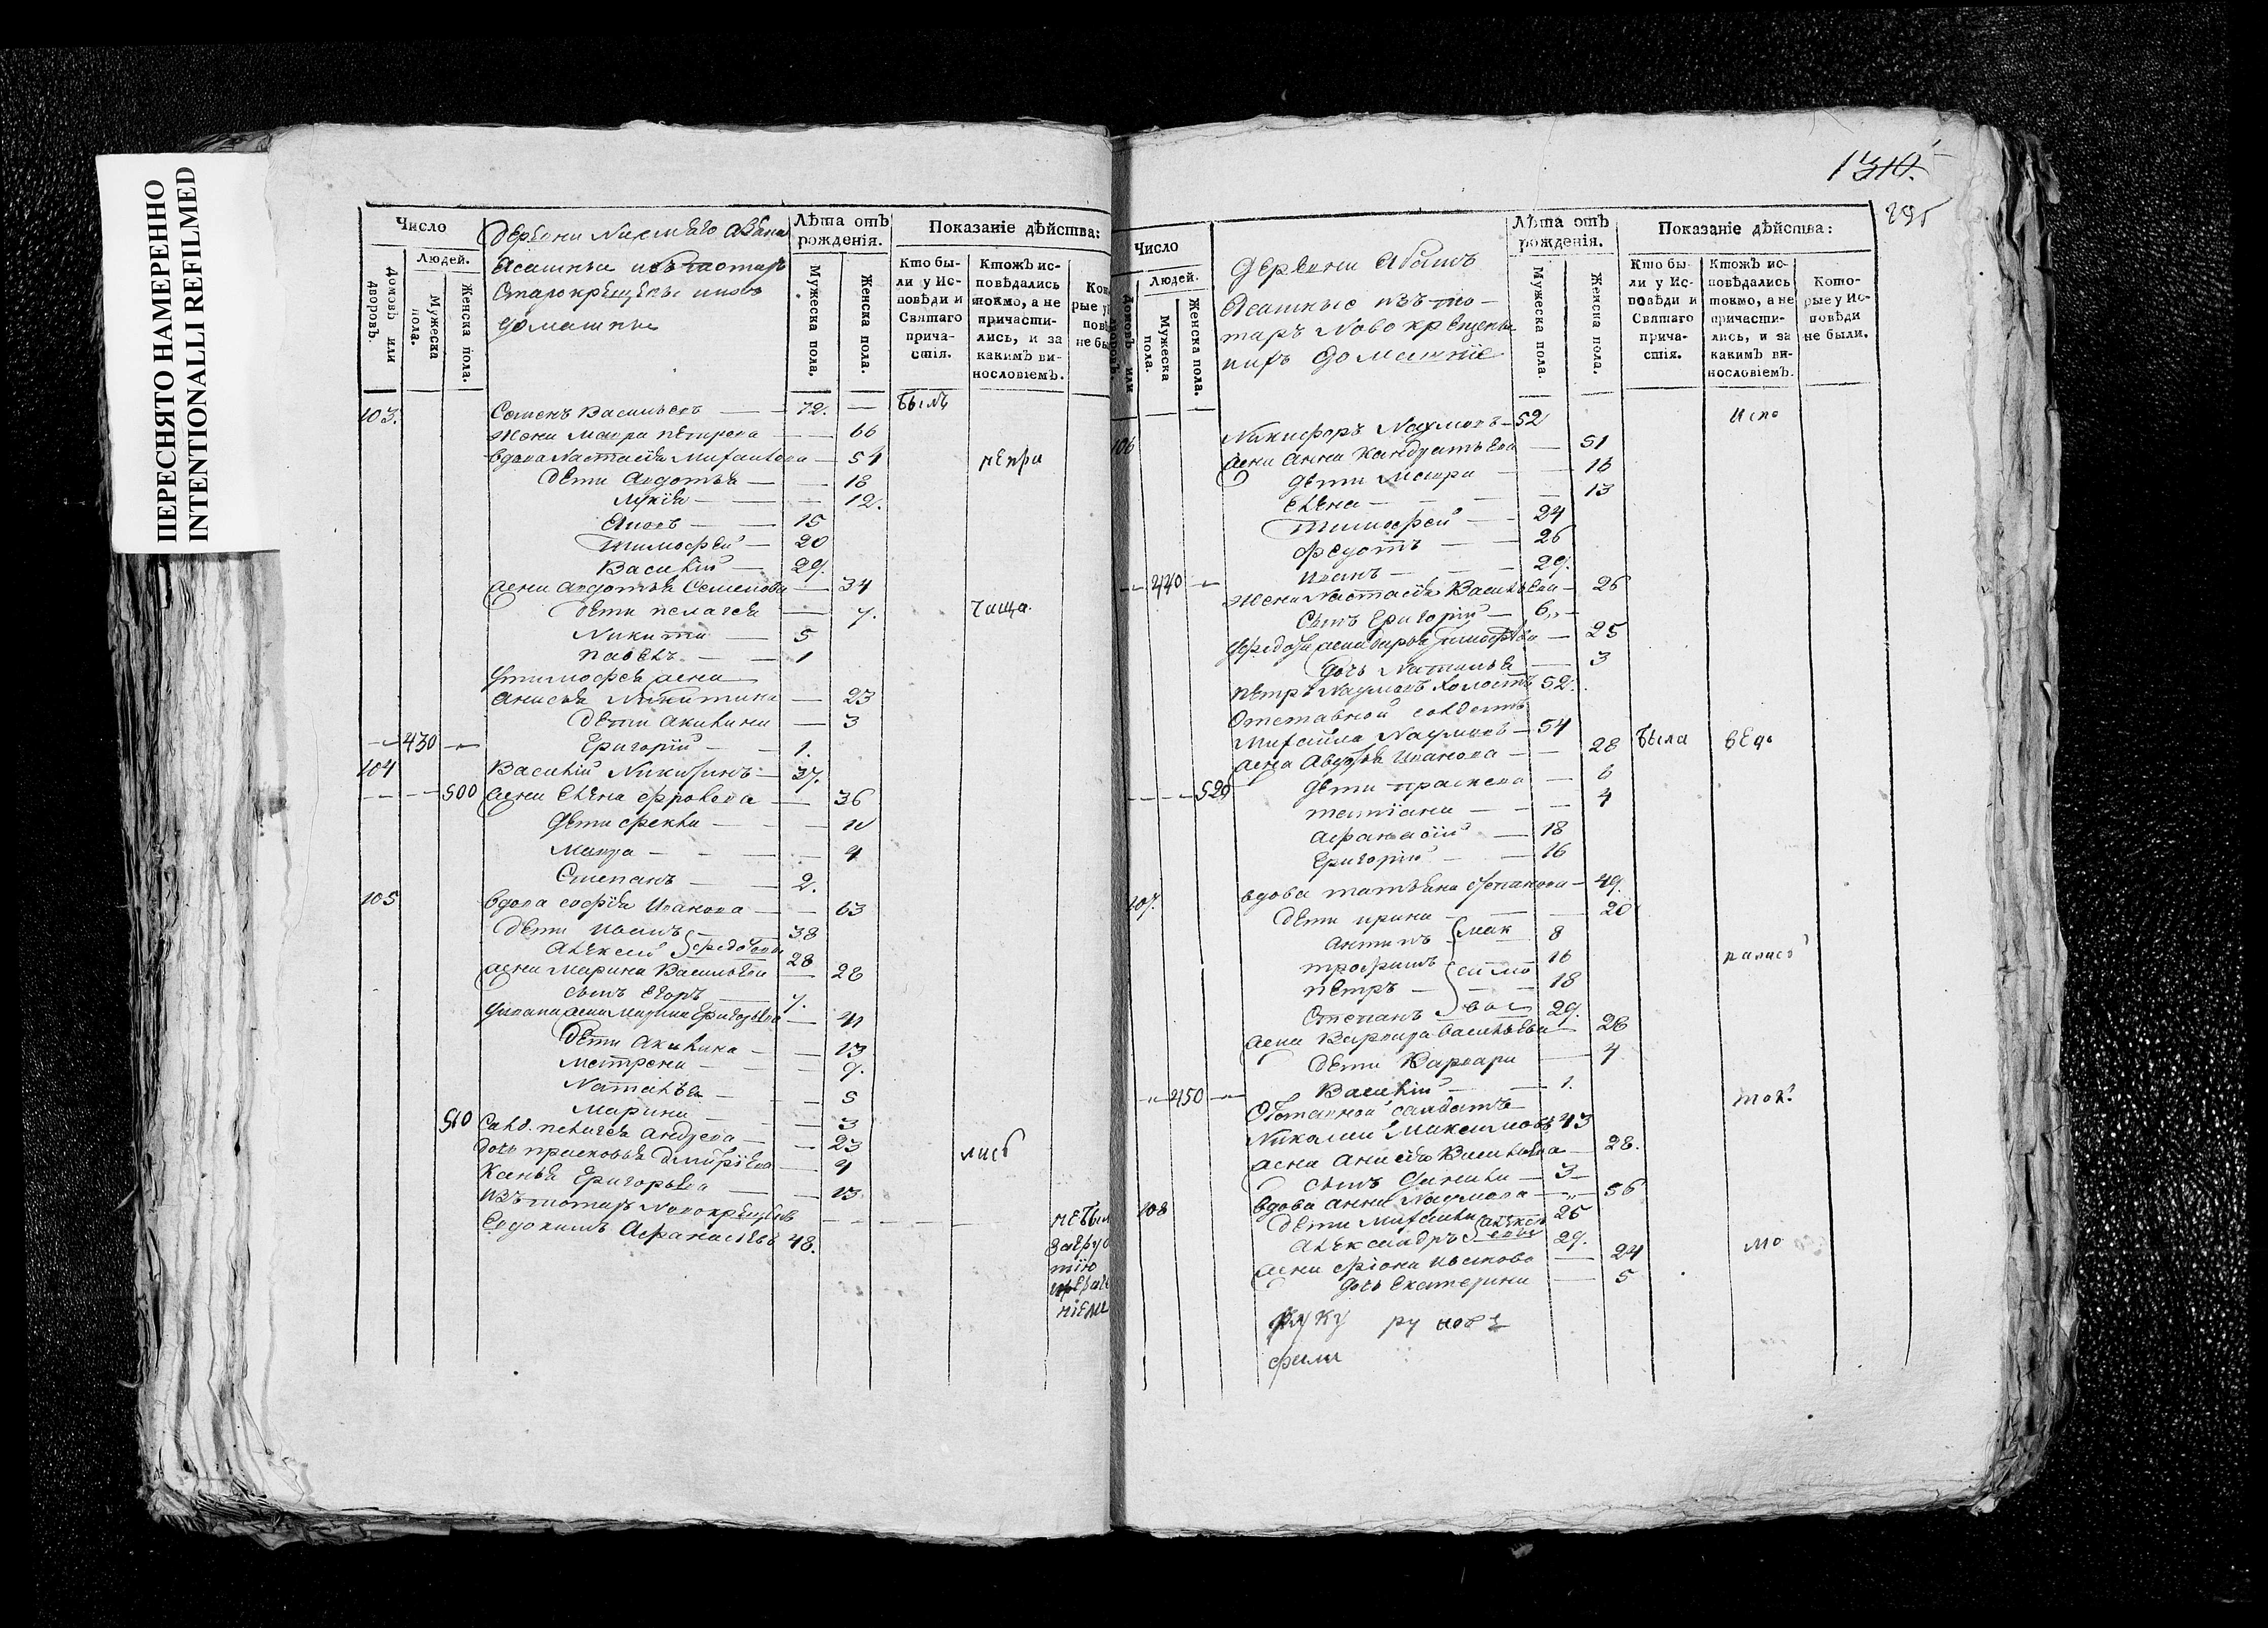 ПЕРЕСНЯТО НАМЕРЕННО
INTENTIONALLI REFILMED
Число
Людей.
Домовъ или дворовъ.
Мужеска пола.
Женска пола.
Деревни
Ясашные изъ татаръ
Старокрещены
домашные
Лѣта отъ рожденія.
Мужеска пола.
Женска пола.
Показаніе дѣйства:
Кто бы-
ли у Ис-
повѣди и
Святаго
прича-
стія.
Ктожъ ис-
повѣдались
токмо, а не
причасти-
лись, и за
какимъ ви-
нословіемъ.
103. Семенъ Васильевъ 72. былъ
Жена Мавра Петрова 66
вдова Настасья Михайлова 54 непри
Дети Авдотья 18
Лукія 12.
15
Тимофей 20
Василій 29.
жена Авдотья Семенова 34
Дети Пелагея 7. чаща.
Никита 5
Павелъ 1
Утимофея жена
Анисья Никитина 23
Дети Акилина 3
430 Григорій 1.
104 Василій Никитинъ 37.
500 жена Елена Фролова 36
Дети Фекла
Мавра 4
Степанъ 2.
105 вдова Софья Иванова 63
Дети Иванъ 38
Алексей Федотовы 28
жена Марина Васильева 28
сынъ Егоръ 7.
Уивана жена Марина Григорьева
Дети Акилина 13
Матрена 9.
Наталья 5
Марина 3
510 Салд. Пелагея Андреева 23
дочь Прасковья Дмитріева 4 лис
Ксенья Григорьева 13
изъ татаръ Новокрещенъ
Евдокимъ Афанасьевъ 48. небыл
1310.
295
Число
Людей.
Мужеска пола.
Женска пола.
Деревни
Ясашные изъ та-
таръ Новокрещены
домашніе
Лѣта отъ рожденія.
Мужеска пола.
Женска пола.
Показаніе дѣйства:
Кто бы-
ли у Ис-
повѣди и
Святаго
прича-
стія.
Ктожъ ис-
повѣдались
токмо, а не
причасти-
лись, и за
какимъ ви-
нословіемъ.
Кото-
рые у Ис-
повѣди
не были.
106 Никифоръ Наумовъ 52 Испо
жена Анна Кандратьева 51
Дети Мавра 16
Елена 13
Тимофей 24
Федотъ 26
440 Иванъ 29.
Жена Настасья Васильева 26
Сынъ Григорій 6
Уфедота жена Дарья Тимофеева 25
дочь Наталья 3
Петръ Наумовъ холостъ 52.
Отставной солдатъ
Михайла Наумовъ 54
жена Авдотья Иванова 28 была ведо
520 Дети Праскева 6
Татіана 4
Афанасій 18
Григорій 16
107. вдова Татьяна Степанова 49.
Дети Ирина 20
Антипъ Мак 8
Трофимъ 16
Петръ симо 18
Степанъ вы 29.
жена Варвара Васильева 26
Дети Варвара 4
450 Василій 1.
Отставной салдатъ ток
Николай Максимовъ 43
жена Анисья Васильева 28.
сынъ Данила 3
108 вдова Анна Наумова 56
Дети Михайла 25
Александръ Алексеевы 29. мо
жена Фіона Иванова 24
дочь Екатерина 5